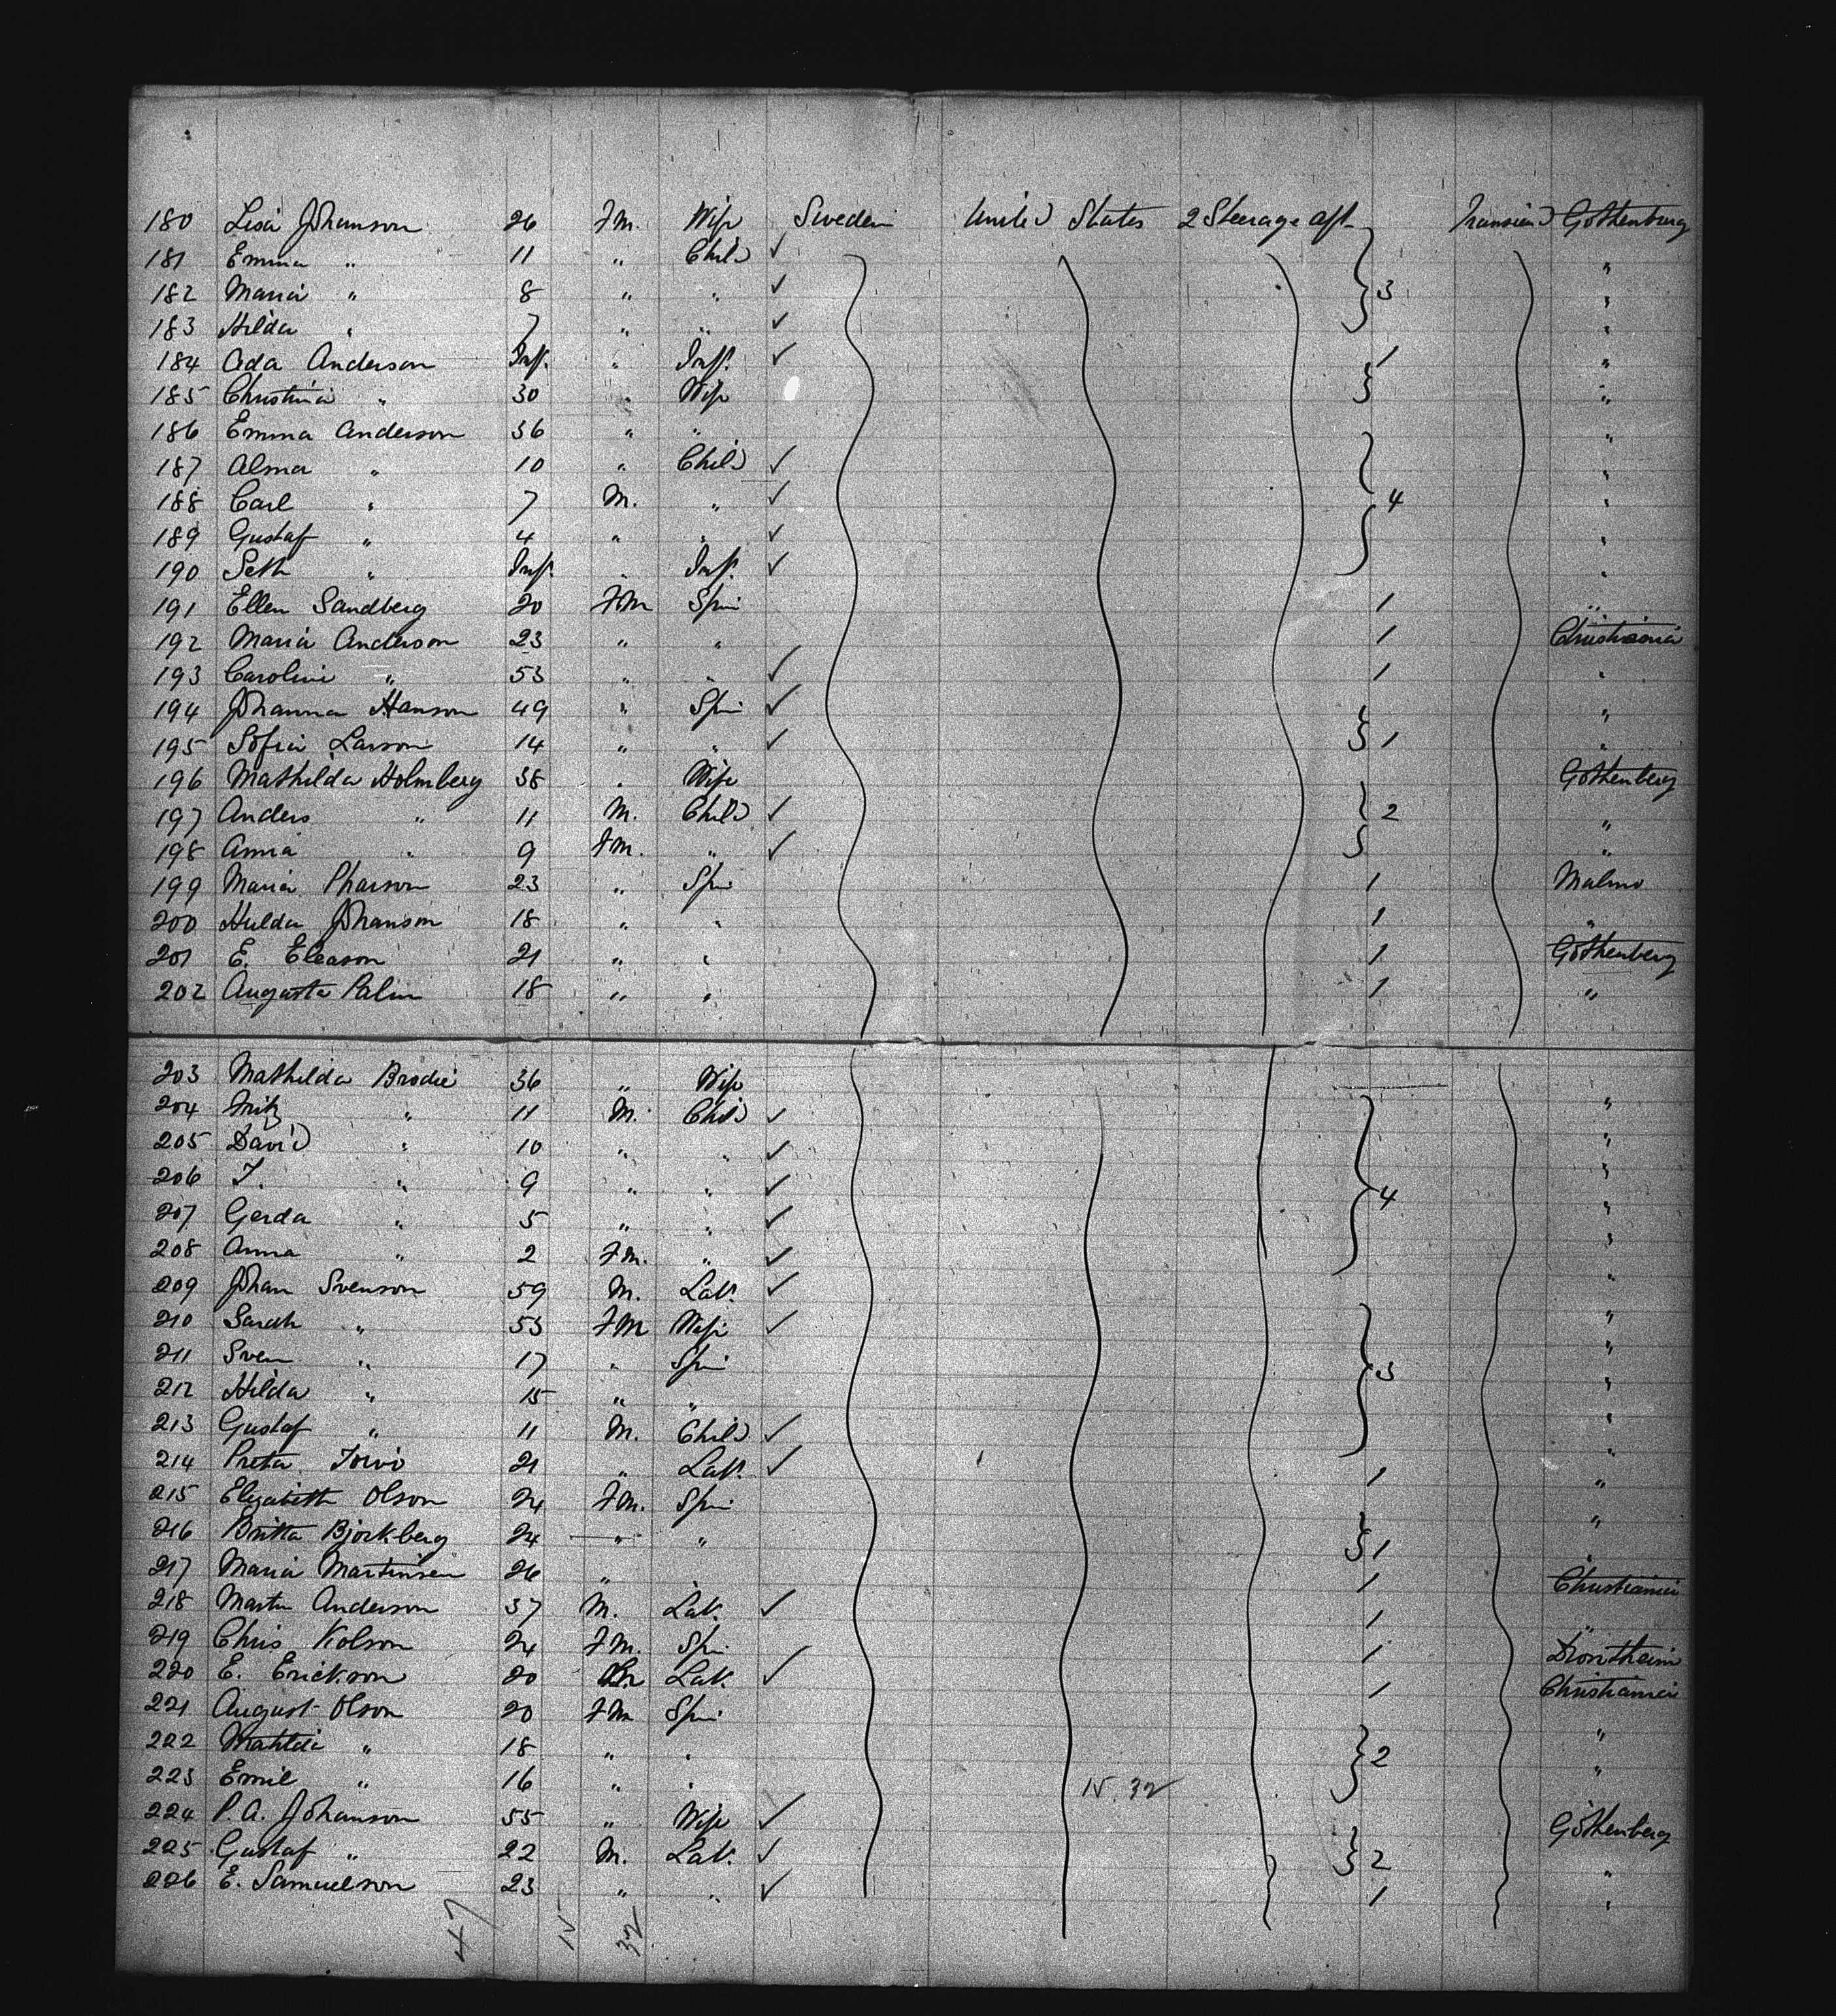 180 Lisa Johanson 26 Fm. Wife Sweden United States 2 Steerage aft Transient Gothenburg
181 Emma " 11 " Child ✓ "
182 Maria " 8 " " ✓ 3 "
183 Hilda " 7 " " ✓ "
184 Ada Anderson Inf. " Inf. ✓ 1 "
185 Christina " 30 " Wife "
186 Emma Anderson 36 " " "
187 Alma " 10 " Child ✓ "
188 Carl " 7 M. " ✓ 4 "
189 Gustaf " 4 " " ✓ "
190 Seth " Inf. " Inf. ✓ "
191 Ellen Sandberg 20 Fm Spin 1 "
192 Maria Anderson 23 " " 1 Christiania
193 Carolini " 53 " " ✓ 1 "
194 Johanna Hanson 49 " Spin ✓ "
195 Sofia Larson 14 " " ✓ 1 "
196 Mathilda Holmberg 38 " Wife Gothenberg
197 Anders " 11 M. Child ✓ 2 "
198 Anna " 9 Fm. " ✓ "
199 Maria Pharson 23 " Spin 1 Malmo
200 Hulda Johanson 18 " " 1 "
201 E. Eleason 21 " " 1 Gothenberg
202 Augusta Palm 18 " " 1 "
203 Mathilda Brodie 36 " Wife
204 Fritz " 11 M. Child ✓ "
205 David " 10 " " ✓ "
206 T. " 9 " " ✓ "
207 Gerda " 5 " " ✓ 4 "
208 Anna " 2 Fm. " ✓ "
209 Johan Svenson 59 M. Lab. ✓ "
210 Sarah " 53 Fm Wife ✓ "
211 Sven " 17 " Spin "
212 Hilda " 15 " " 3 "
213 Gustaf " 11 M. Child ✓ "
214 Preta 21 " Lab. ✓ 1 "
215 Elizabeth Olson 24 Fm. Spin "
216 Britta Bjorkberg 24 " " 1 "
217 Maria Martinsen 26 " " 1 Christiania
218 Martin Anderson 37 M. Lab. ✓ 1 "
219 Chris Kolson 24 Fm. Spin 1 Drontheim
220 E. Erickson 20 Lab. ✓ 1 Christiania
221 August Olson 20 Fm Spin "
222 " 18 " " 2
223 Emil " 16 " " 15. 32 "
224 P. A. Johanson 55 " Wife ✓ Gothenberg
225 Gustaf " 22 M. Lab. ✓ 2 "
226 E. Samuelson 23 " " ✓ 1 "
47 15 32